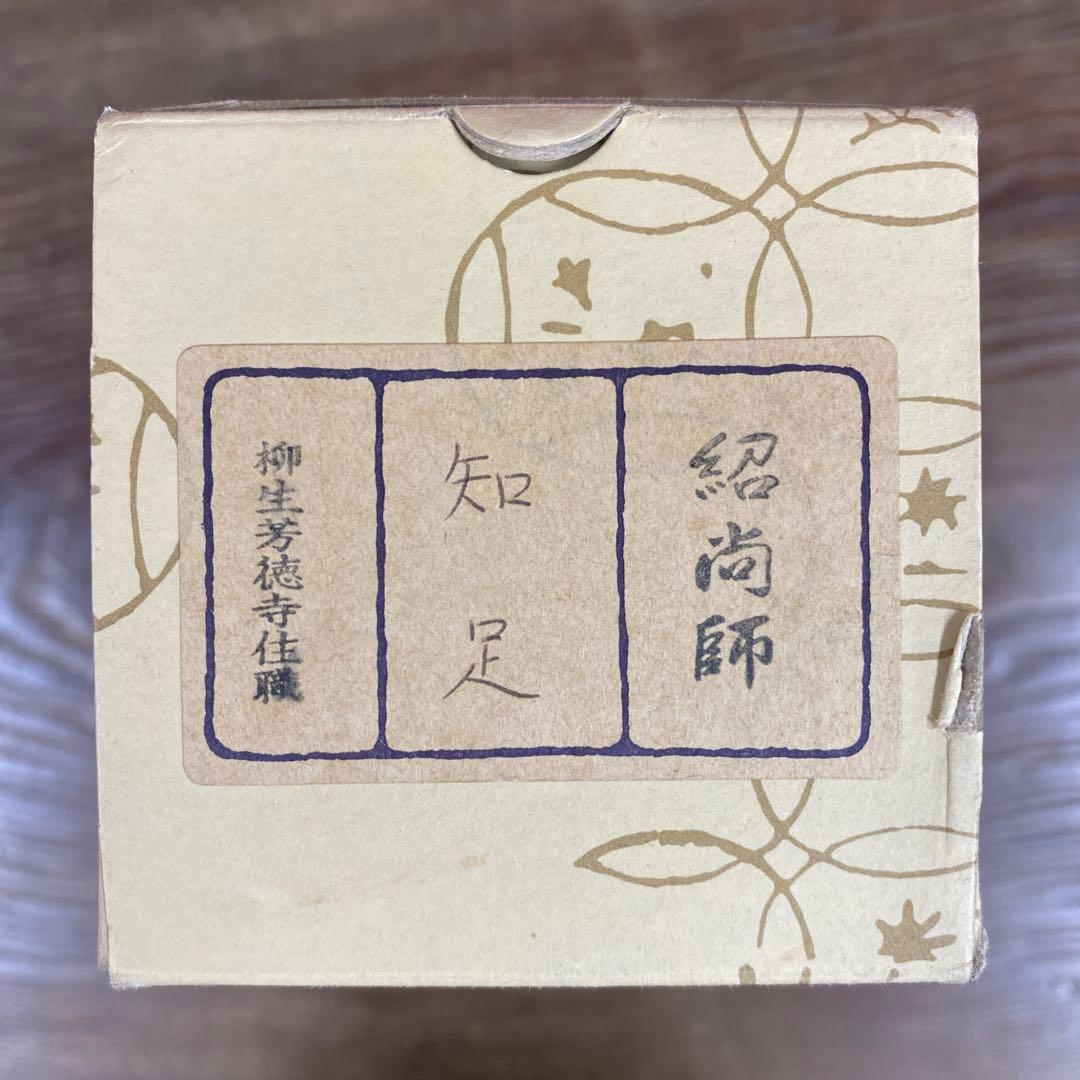 紹尚師
知足
柳生芳徳寺住職